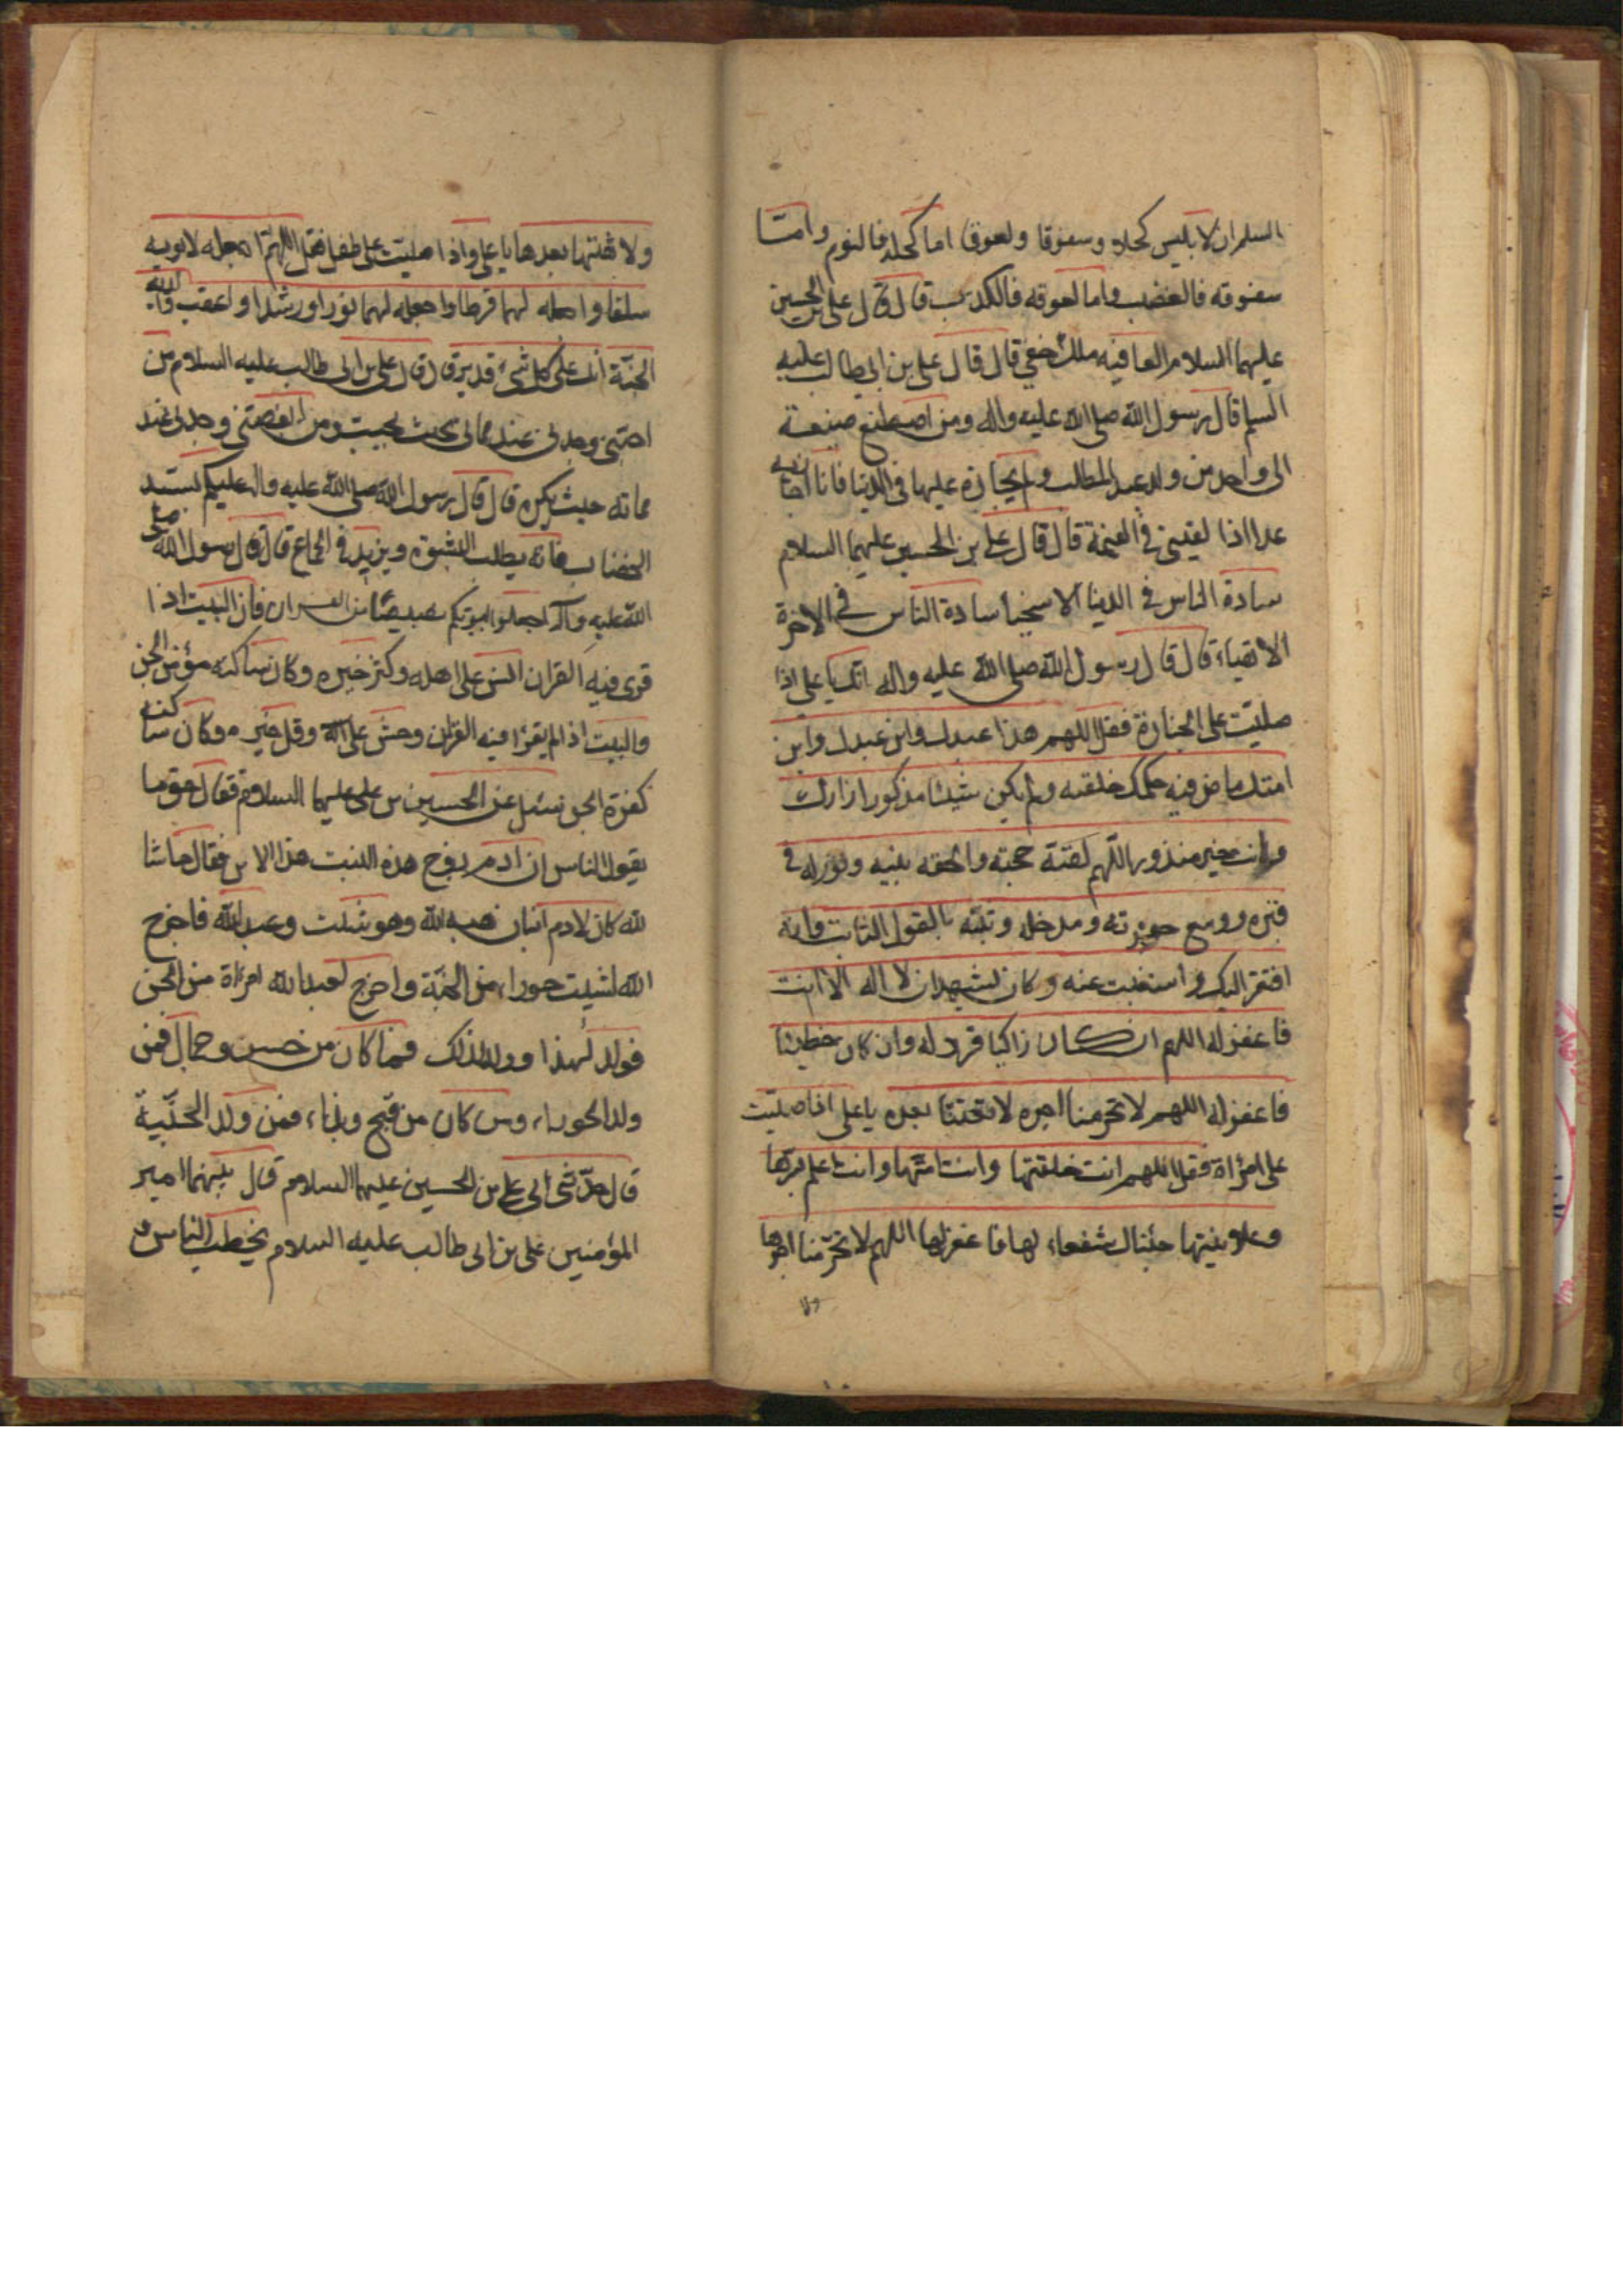 السلم ان لابليس كحلا وسفوفا ولعوقا اما كحله فالنوم واما
سفوفه فالغضب واما لعوقه فالكذب قال قال علي بن الحسين
عليهما السلام العافيه ملك خفي قال قال علي بن ابي طالب عليه
السلم قال رسول الله صلى الله عليه واله ومن اصطنع صنيعة
الى واحد من ولد عبد المطلب ولم يجازه عليها في الدنيا فانا اجازيه
غدا اذا لقيني في القيمة قال قال علي بن الحسين عليهما السلام
سادة الناس في الدنيا الاسخيا سادة الناس في الاخرة
الاتقياء قال قال رسول الله صلى الله عليه واله انك يا علي اذا
صليت على الجنازة فقل اللهم هذا عبدك وابن عبدك وابن
امتك ماض فيه حكمك خلقته ولم يكن شيئا مذكورا زارك
وانت خير مزور اللهم لقنه حجته والحقه بنبيه ونور له في
قبره ووسع عليه مدخله وثبته بالقول الثابت فانه
افتقر اليك واستغنيت عنه وكان يشهد ان لا اله الا انت
فاغفر له اللهم ان كان زاكيا فزد له وان كان خطيئا
فاغفر له اللهم لا تحرمنا اجره لا تفتنا بعده يا علي اذا صليت
على امرأة فقل اللهم انت خلقتها وانت امتها وانت اعلم بسرها
وعلانيتها جئناك شفعاء لها فاغفر لها اللهم لا تحرمنا اجرها
ولا
ولا تفتنا بعدها يا علي واذا صليت على طفل فقل اللهم اجعله لابويه
سلفا واجعله لهما فرطا واجعله لهما نورا ورشدا واعقب والديه
الجنة انك على كل شيء قدير قال قال علي بن ابي طالب عليه السلام من
احبني وجدني عند مماته بحيث يحب ومن ابغضني وجدني عند
مماته حيث يكره قال قال رسول الله صلى الله عليه واله عليكم بسيد
الخضاب فانه يطلب البشرة ويزيد في الجماع قال قال رسول الله صلى
الله عليه وآله اجعلوا لبيوتكم نصيبا من القران فان البيت اذا
قرى فيه القران انس على اهله وكثر خيره وكان ساكنه مؤمن الجن
والبيت اذا لم يقرأ فيه القران وحش على اهله وقل خيره وكان ساكنه
كفرة الجن سئل عن الحسين بن علي عليهما السلام فقال عوما
يقول الناس ان ادم زوج هذه البنت هذا الابن فقال حاشا
لله كان لادم ابنان هبه الله وهو شيث وعبد الله فاخرج
الله لشيث حوراء من الجنة واخرج لعبد الله امرأة من الجن
فولد لهذا وولد لذلك فما كان من حسن وجمال فمن
ولد الحوراء ومن كان من قبح وبذاء فمن ولد الجنية
قال حدثني ابي علي بن الحسين عليهما السلام قال بينما امير
المؤمنين علي بن ابي طالب عليه السلام يخطب الناس